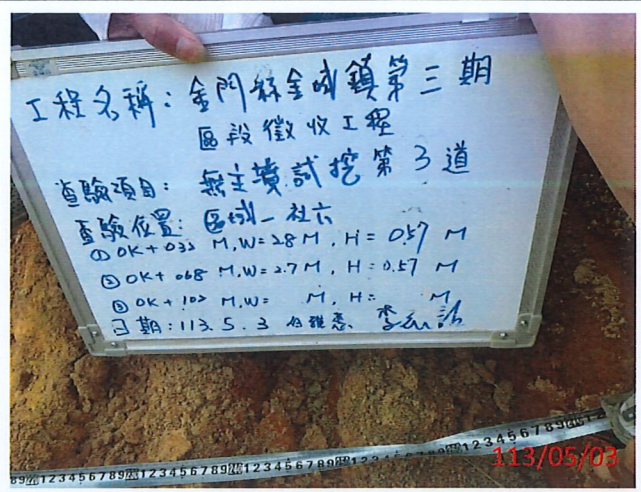 工程名稱：金門縣金城鎮第三期
區段徵收工程
查驗項目：無主墳試挖第3道
查驗位置：區域一社六
①0K+033 M,W=2.8M, H=0.57 M
②0K+068 M,W=2.7M, H=0.57 M
③0K+102 M,W= M, H= M
日期：113.5.3
113/05/03